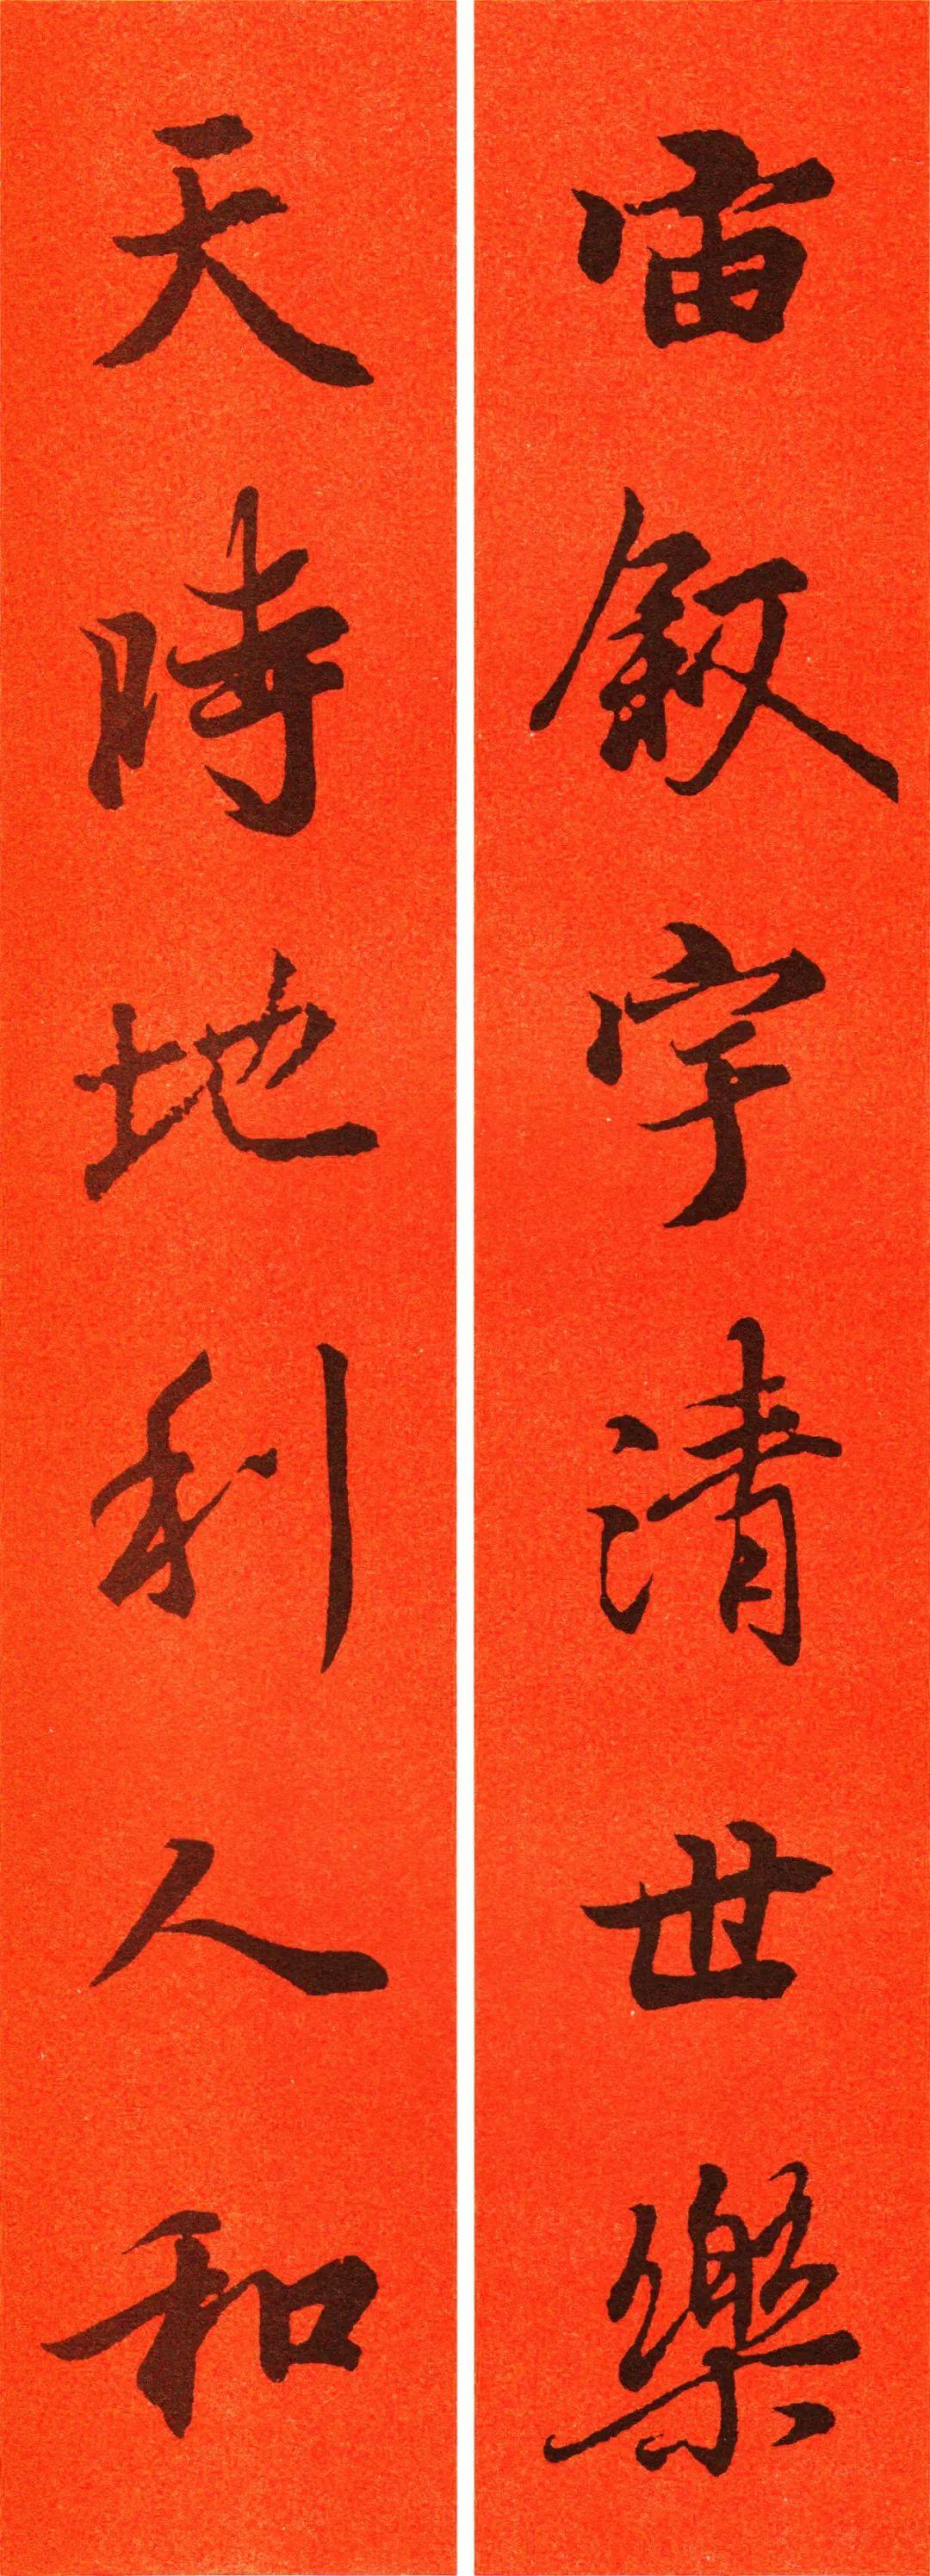 宙叙宇清世樂
天時地利人和